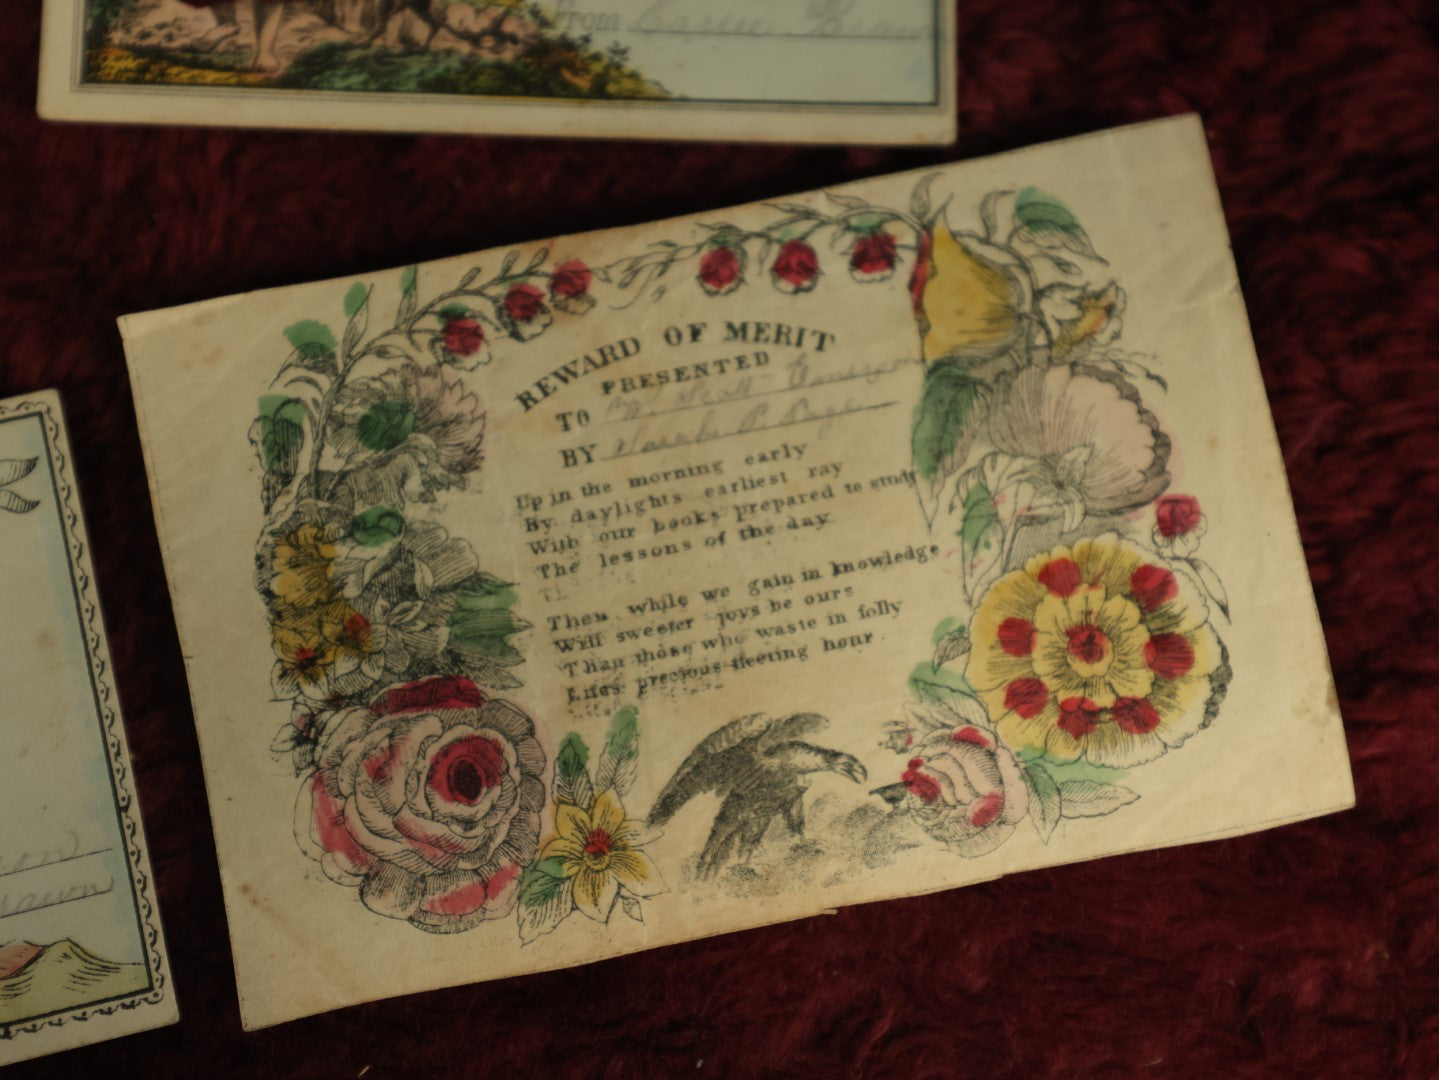 From
REWARD OF MERIT
PRESENTED
TO W. Scott Emerson
BY Sarah P. Page
Up in the morning early
By daylights earliest ray
With our books prepared to study
The lessons of the day
Then while we gain in knowledge
Will sweeter joys be ours
Than those who waste in folly
Lifes precious fleeting hour